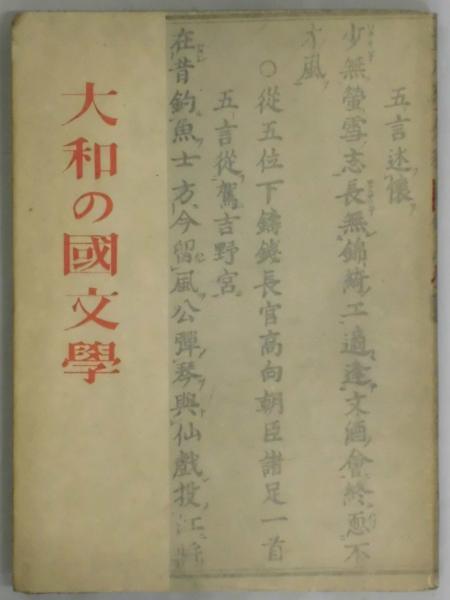 大和の國文學
五言述懷
少無螢雪志長無錦綺工適逢文酒會終恧不
才風
○從五位下鑄錢長官高向朝臣諸足一首
五言從駕吉野宮
在昔釣魚士方今留風公彈琴與仙戲投江將